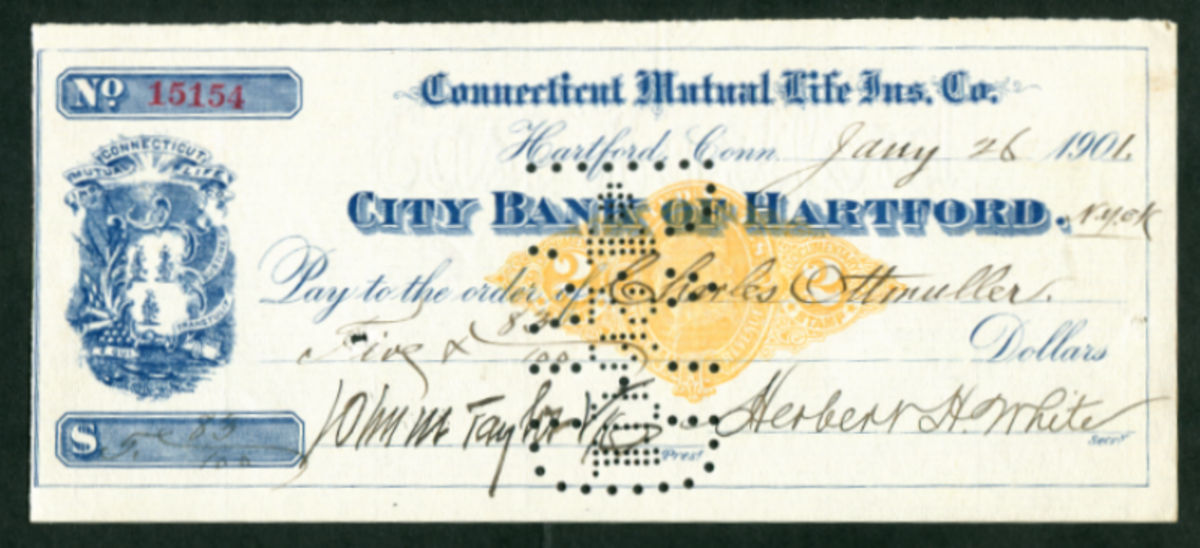 No 15154
Connecticut Mutual Life Ins. Co.
Hartford, Conn. Jany 26 1901.
CONNECTICUT
MUTUAL LIFE
CITY BANK OF HARTFORD. N.Y. OK
Pay to the order of Charles Ottmuller.
Five & 83/100 Dollars
$ 5 83/100
John M Taylor Prest
Herbert H. White Secr'y
2 2